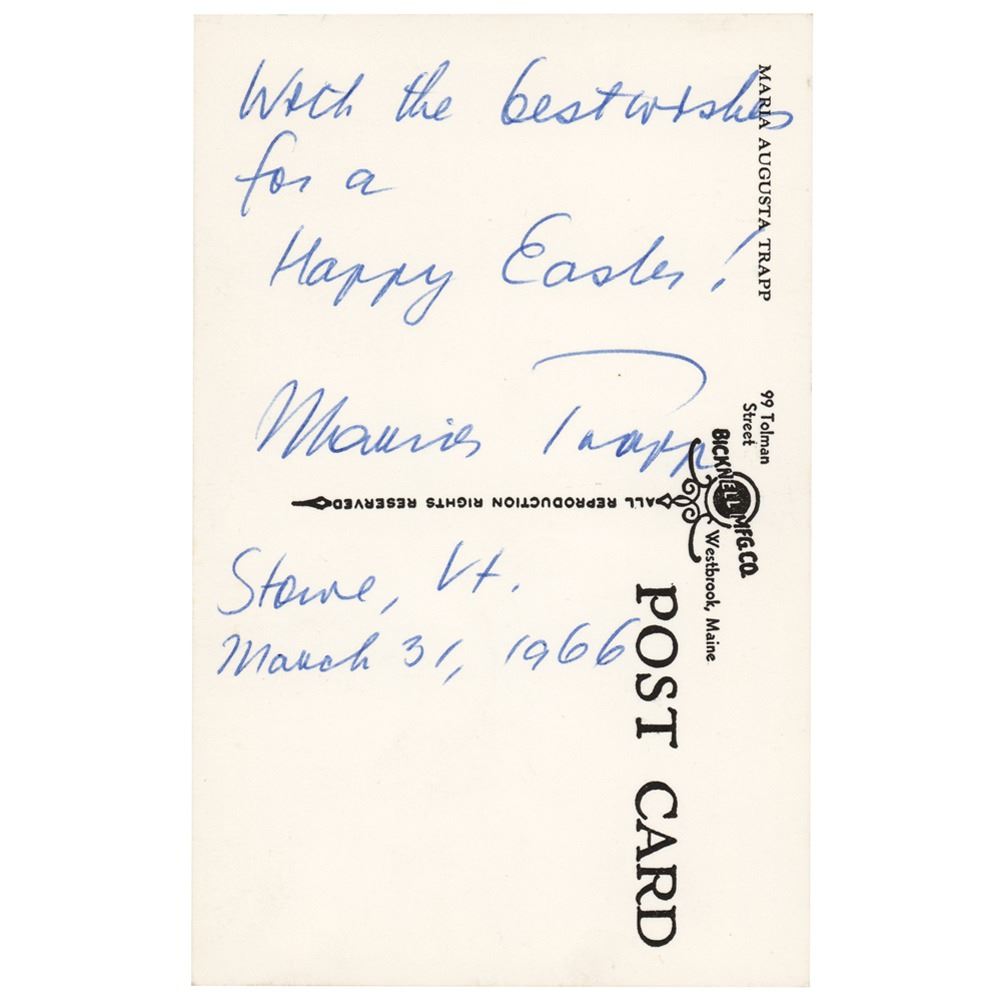 With the best wishes
for a
Happy Easter!
Maria Trapp
Stowe, Vt.
March 31, 1966
MARIA AUGUSTA TRAPP
99 Tolman
Street
BICKNELL MFG.CO.
Westbrook, Maine
ALL REPRODUCTION RIGHTS RESERVED
POST CARD